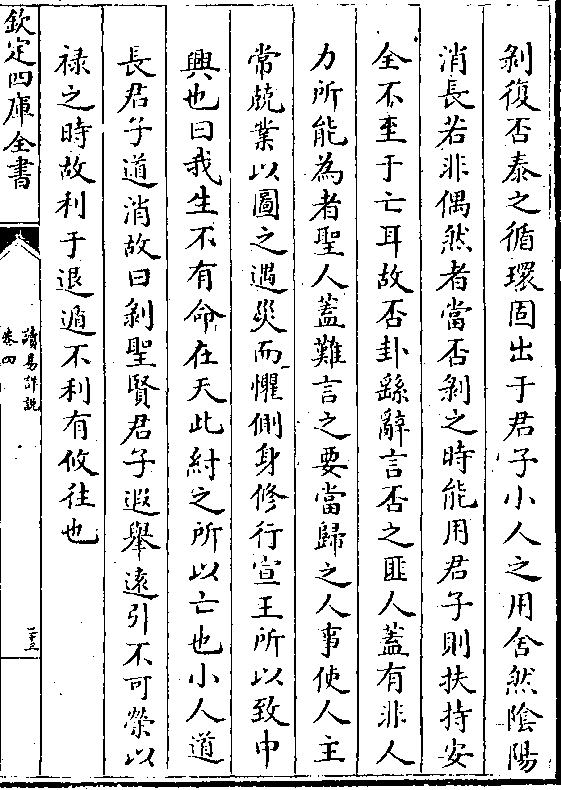 剝復否泰之循環固出于君子小人之用舍然隂陽
消長若非偶然者當否剝之時能用君子則扶持安
全不至于亡耳故否卦繇辭言否之匪人蓋有非人
力所能為者聖人蓋難言之要當歸之人事使人主
常兢業以圖之遇災而懼側身修行宣王所以致中
興也曰我生不有命在天此紂之所以亡也小人道
長君子道消故曰剝聖賢君子遐舉遠引不可榮以
禄之時故利于退遁不利有攸往也
欽定四庫全書
讀易詳說
卷四
二十三